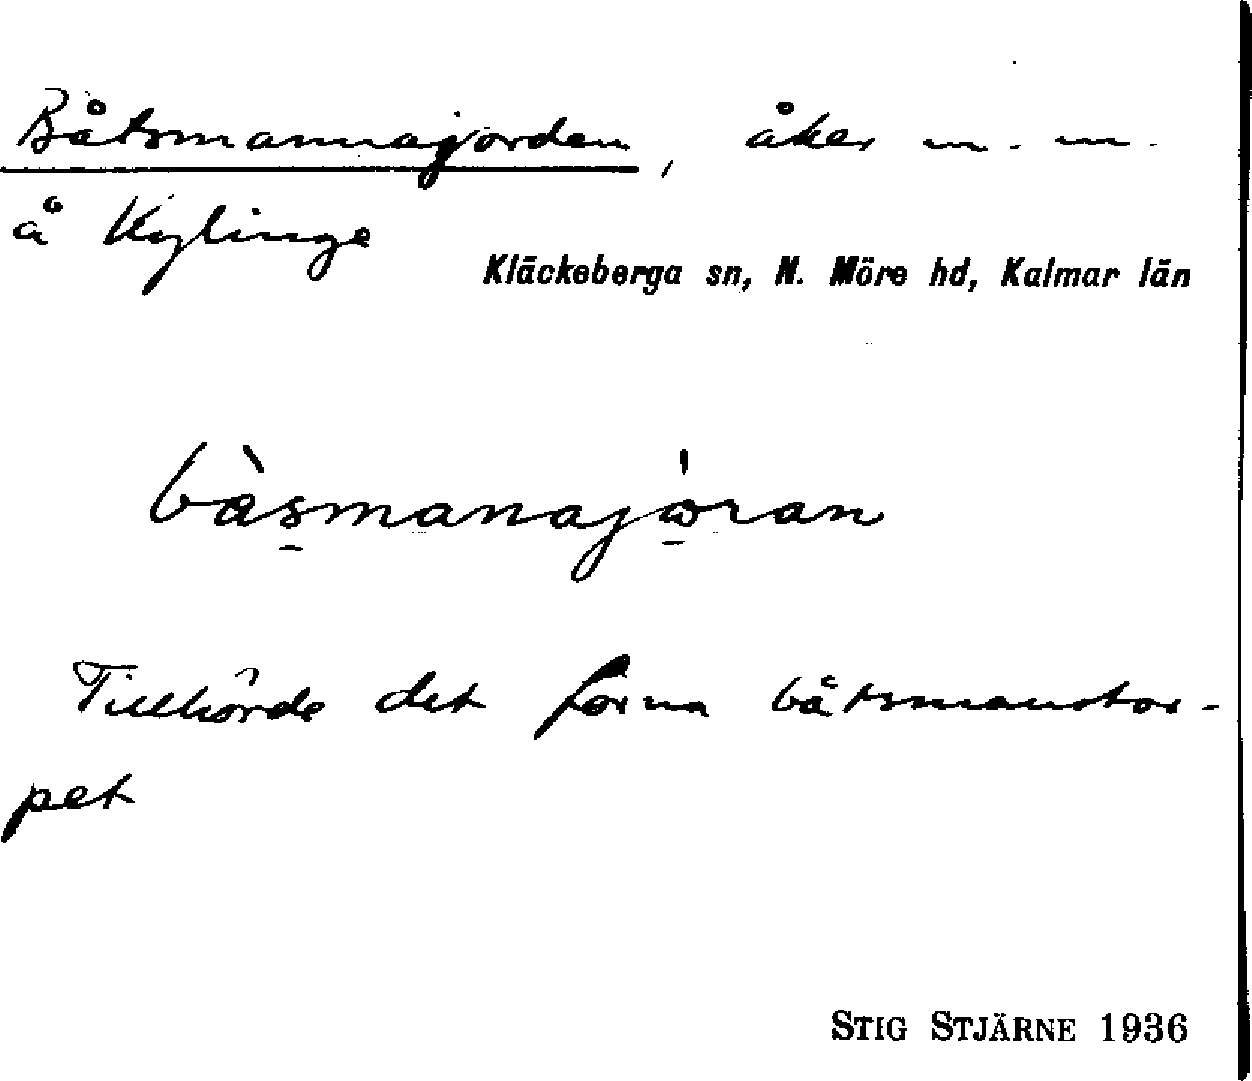 Båtsmannajorden, åker m. m.
å Kylinge
Kläckeberga sn, N. Möre hd, Kalmar län
bàsmanajöran
Tillhörde det forna båtsmanstor-
pet
STIG STJÄRNE 1936